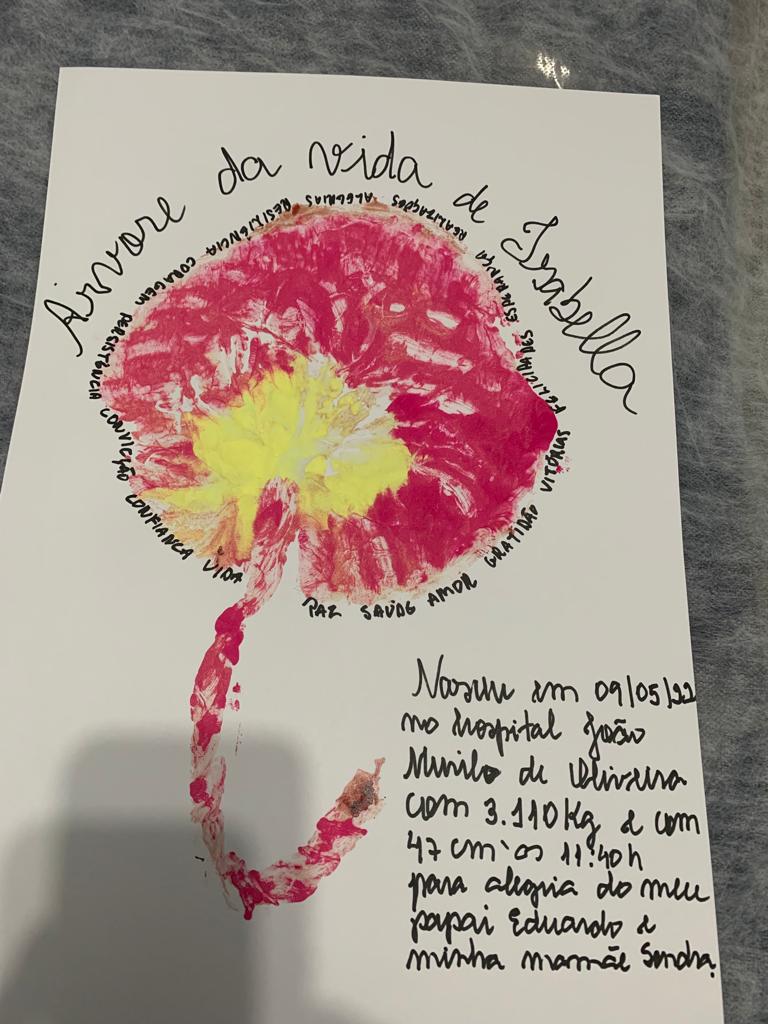 Árvore da vida de Isabella
VIDA CONFIANÇA CONVICÇÃO PERSISTÊNCIA CORAGEM RESILIÊNCIA ALEGRIAS REALIZAÇÕES ESPERANÇA FELICIDADES VITÓRIAS GRATIDÃO AMOR SAÚDE PAZ
Nasceu em 09/05/22
no hospital João
Murilo de Oliveira
com 3.110Kg e com
47 cm às 11:40h
para alegria do meu
papai Eduardo e
minha mamãe Sandra.